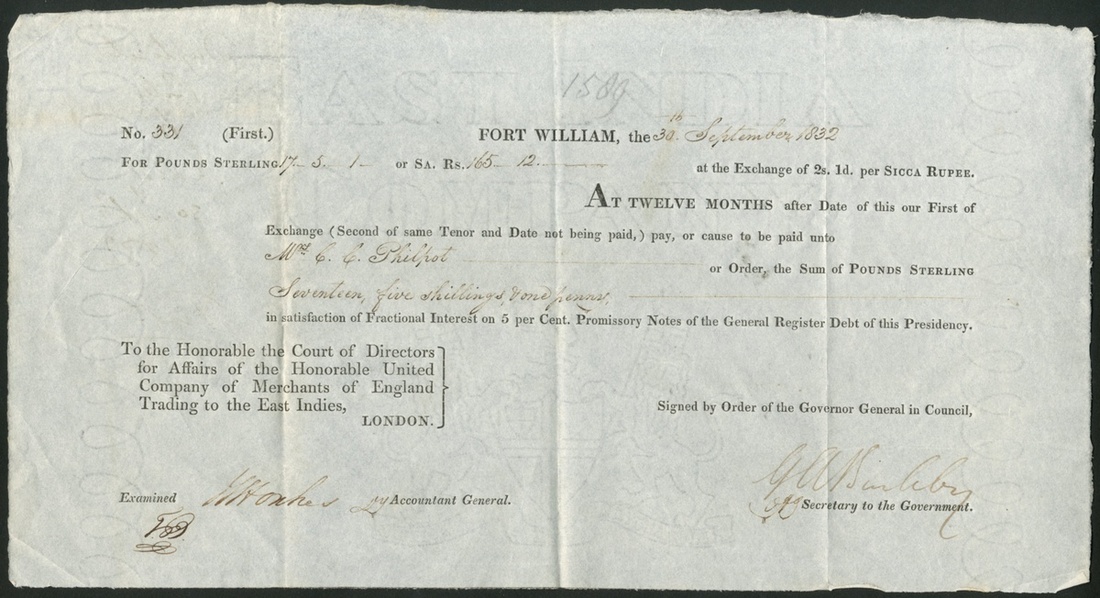 1509
No. 331 (First.) FORT WILLIAM, the 30th September 1832
FOR POUNDS STERLING 17 - 5 - 1 - or SA. Rs. 165 - 12 -
at the Exchange of 2s. 1d. per SICCA RUPEE.
AT TWELVE MONTHS after Date of this our First of
Exchange (Second of same Tenor and Date not being paid,) pay, or cause to be paid unto
C. C. Philpot or Order, the Sum of POUNDS STERLING
Seventeen, five shillings, & one penny,
in satisfaction of Fractional Interest on 5 per Cent. Promissory Notes of the General Register Debt of this Presidency.
To the Honorable the Court of Directors
for Affairs of the Honorable United
Company of Merchants of England
Trading to the East Indies,
LONDON.
Signed by Order of the Governor General in Council,
Examined Accountant General.
Secretary to the Government.